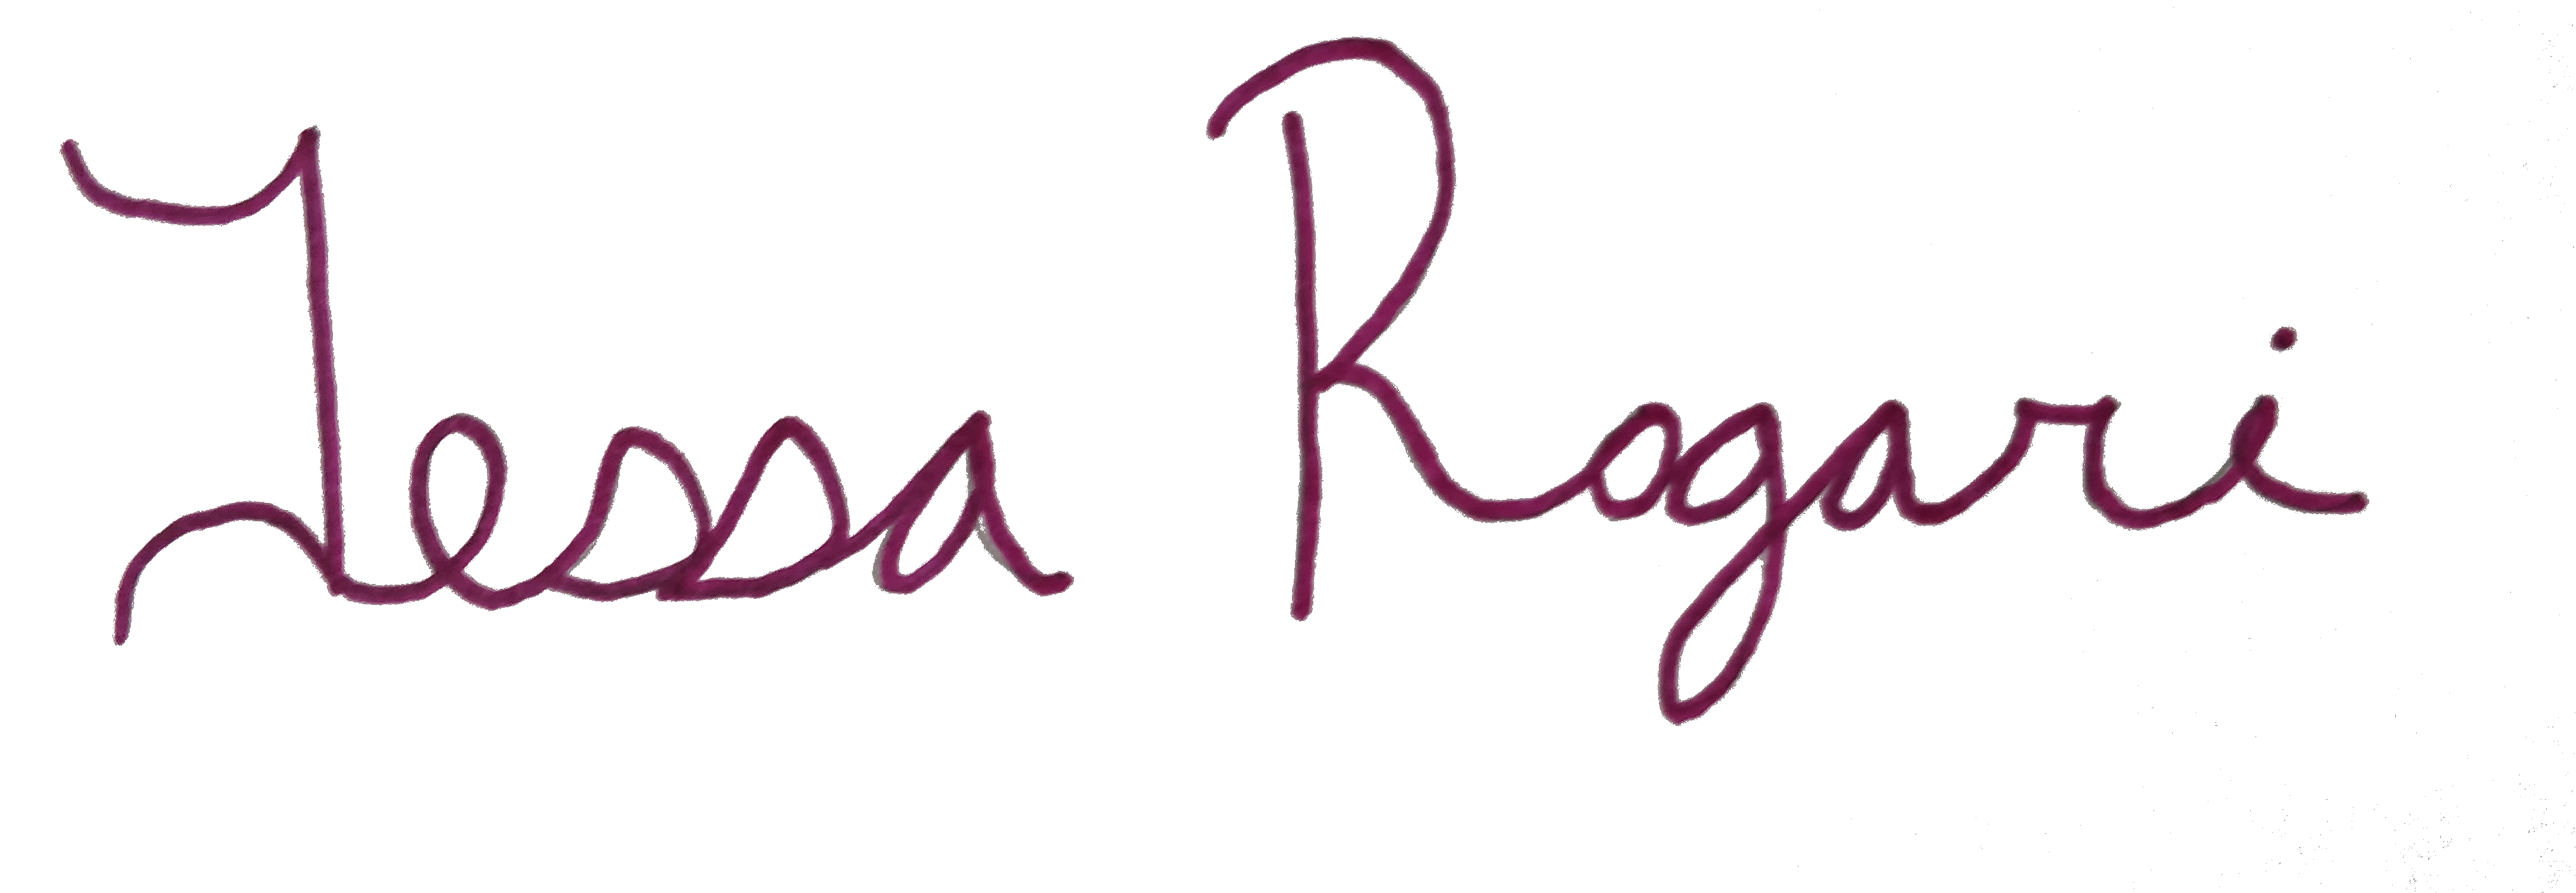 Tessa Rogari